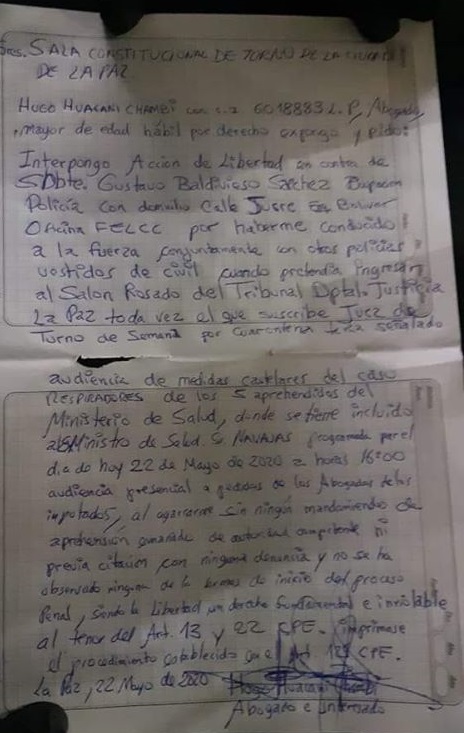 Sres. SALA CONSTITUCIONAL DE TURNO DE LA CIUDAD
DE LA PAZ
HUGO HUACANI CHAMBI con c.i. 6018883 L.P., Abogado,
mayor de edad hábil por derecho expongo y pido:
Interpongo Acción de Libertad en contra de
Sbbte. Gustavo Baldivieso Sanchez
Policia con domicilio Calle Sucre Bolivar
Oficina FELCC por haberme conducido
a la fuerza conjuntamente con otros policias
vestidos de civil cuando pretendia ingresar
al Salon Rosado del Tribunal Dptal. Justicia
La Paz toda vez el que suscribe Juez de
Turno de Semana por Cuarentena señalado
audiencia de medidas cautelares del caso
RESPIRADORES de los 5 aprehendidos del
Ministerio de Salud, donde se tiene incluido
al Ministro de Salud. S. NAVAJAS programada para el
dia de hoy 22 de Mayo de 2020 a horas 16:00
audiencia presencial a pedidos de los Abogados de los
imputados, al agarrarme sin ningún mandamiento de
aprehensión emanado de autoridad competente ni
previa citación con ninguna denuncia y no se ha
observado ninguna de la formas de inicio del proceso
Penal, siendo la libertad un derecho fundamental e inviolable
al tenor del Art. 13 y 22 CPE. imprimase
el procedimiento establecido en el Art. 125 CPE.
La Paz, 22 Mayo de 2020 Hugo Huacani Chambi
Abogado e Interesado